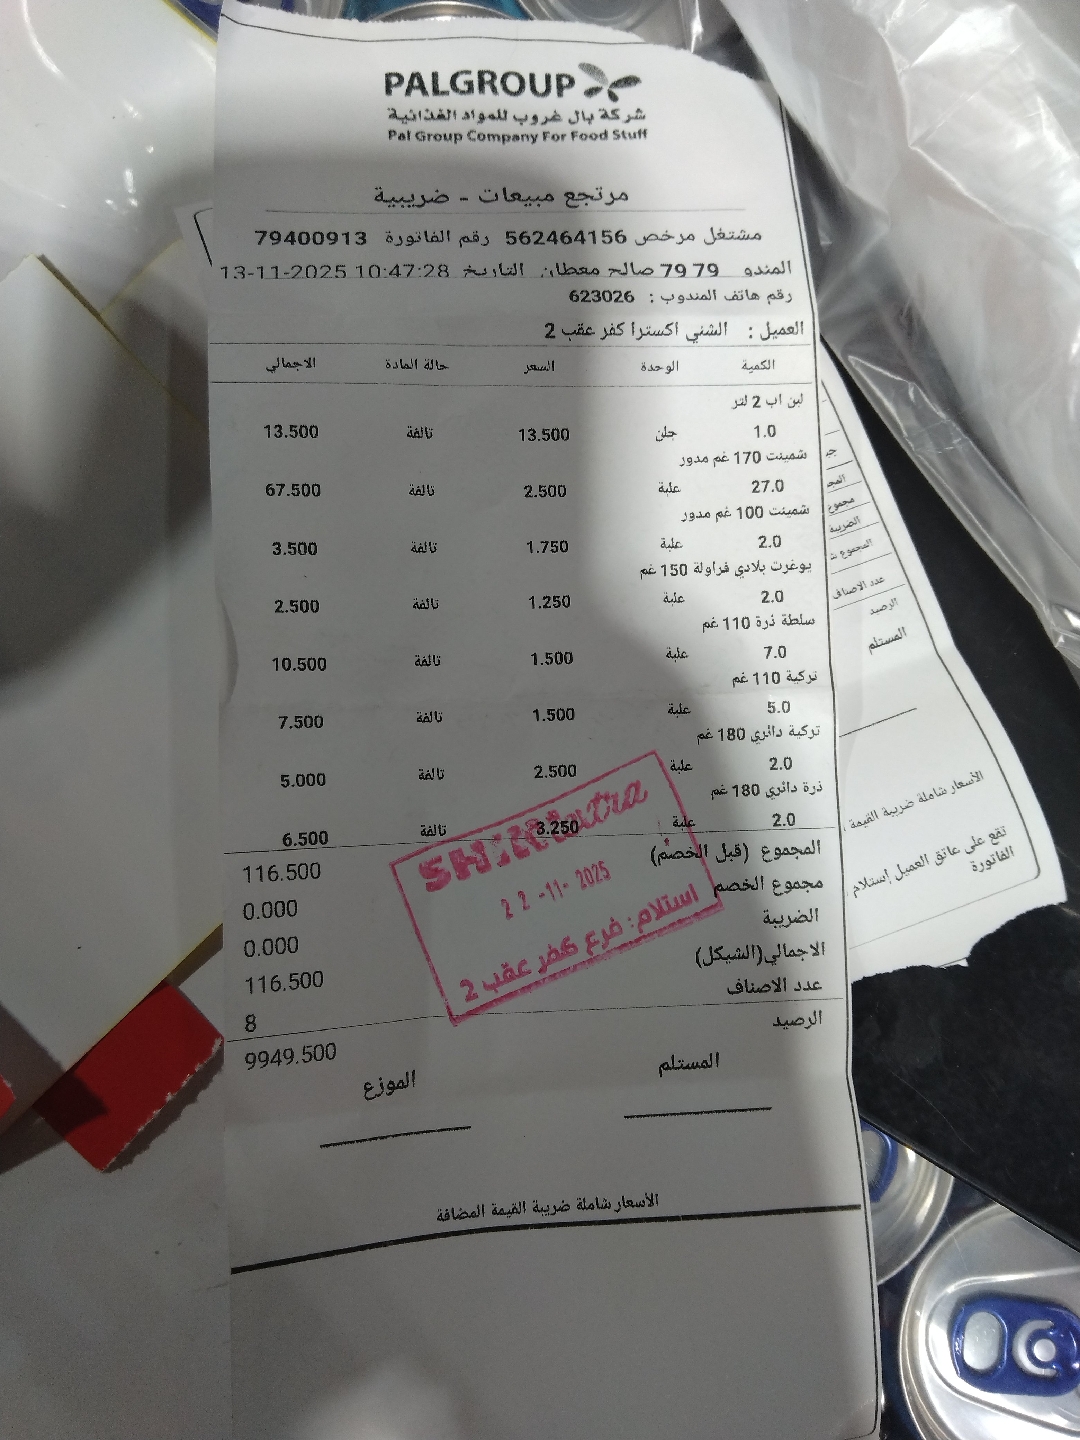 PALGROUP
شركة بال غروب للمواد الغذائية
Pal Group Company For Food Stuff
مرتجع مبيعات - ضريبية
مشتغل مرخص 562464156 رقم الفاتورة 79400913
المندو 79 79 صالح معطان التاريخ 13-11-2025 10:47:28
رقم هاتف المندوب : 623026
العميل : الشني اكسترا كفر عقب 2
الكمية الوحدة السعر حالة المادة الاجمالي
لبن اب 2 لتر
1.0 جلن 13.500 تالفة 13.500
شمينت 170 غم مدور
27.0 علبة 2.500 تالفة 67.500
شمينت 100 غم مدور
2.0 علبة 1.750 تالفة 3.500
يوغرت بلادي فراولة 150 غم
2.0 علبة 1.250 تالفة 2.500
سلطة ذرة 110 غم
7.0 علبة 1.500 تالفة 10.500
تركية 110 غم
5.0 علبة 1.500 تالفة 7.500
تركية دائري 180 غم
2.0 علبة 2.500 تالفة 5.000
ذرة دائري 180 غم
2.0 علبة 3.250 تالفة 6.500
المجموع (قبل الخصم) 116.500
مجموع الخصم 0.000
الضريبة 0.000
الاجمالي(الشيكل) 116.500
عدد الاصناف 8
الرصيد 9949.500
المستلم الموزع
الأسعار شاملة ضريبة القيمة المضافة
22-11-2025
استلام: فرع كفر عقب 2
مجموع
الضريبة
المجموع
عدد الاصناف
الرصيد
المستلم
الأسعار شاملة ضريبة القيمة
تقع على عاتق العميل إستلام
الفاتورة